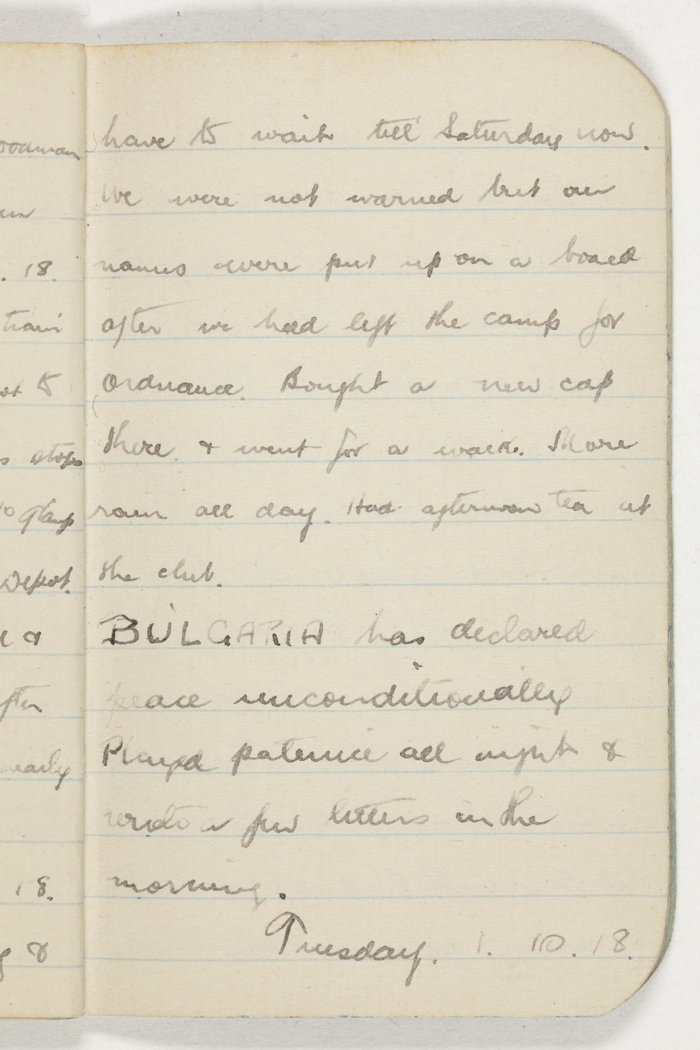 oodman
. 18.
train
stops
Depot.
after
nearly
18.
&
have to wait till Saturday now.
We were not warned but our
names were put up on a board
after we had left the camp for
Ordnance. Bought a new cap
there & went for a walk. More
rain all day. Had afternoon tea at
the club.
BULGARIA has declared
peace unconditionally
Played patience all night &
wrote a few letters in the
morning.
Tuesday. 1. 10. 18.